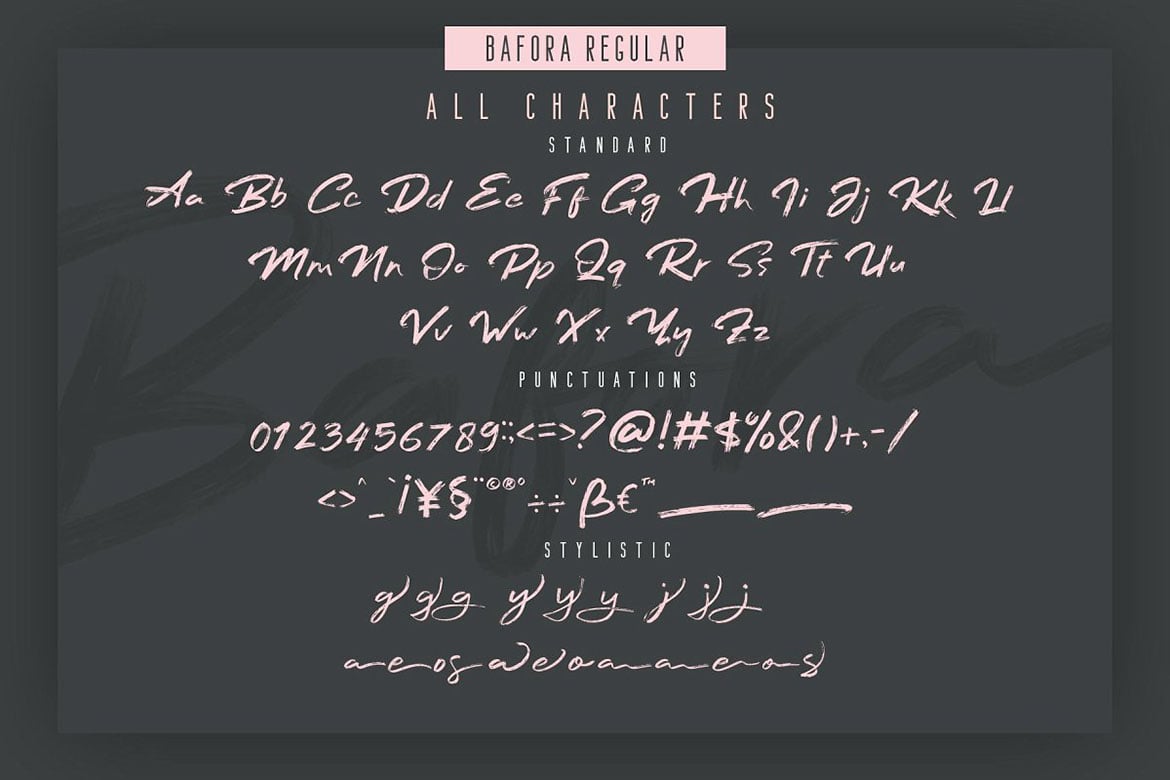 BAFORA REGULAR
ALL CHARACTERS
STANDARD
Aa Bb Cc Dd Ee Ff Gg Hh Ii Jj Kk Ll
Mm Nn Oo Pp Qq Rr Ss Tt Uu
Vv Ww Xx Yy Zz
PUNCTUATIONS
0123456789:;<=>?@!#$%&()+,-/
<>^_`¡¥§¨©®°÷÷ˇβ€™
STYLISTIC
g g g y y y j j j
a e o s a e o a a e o s
Bafora